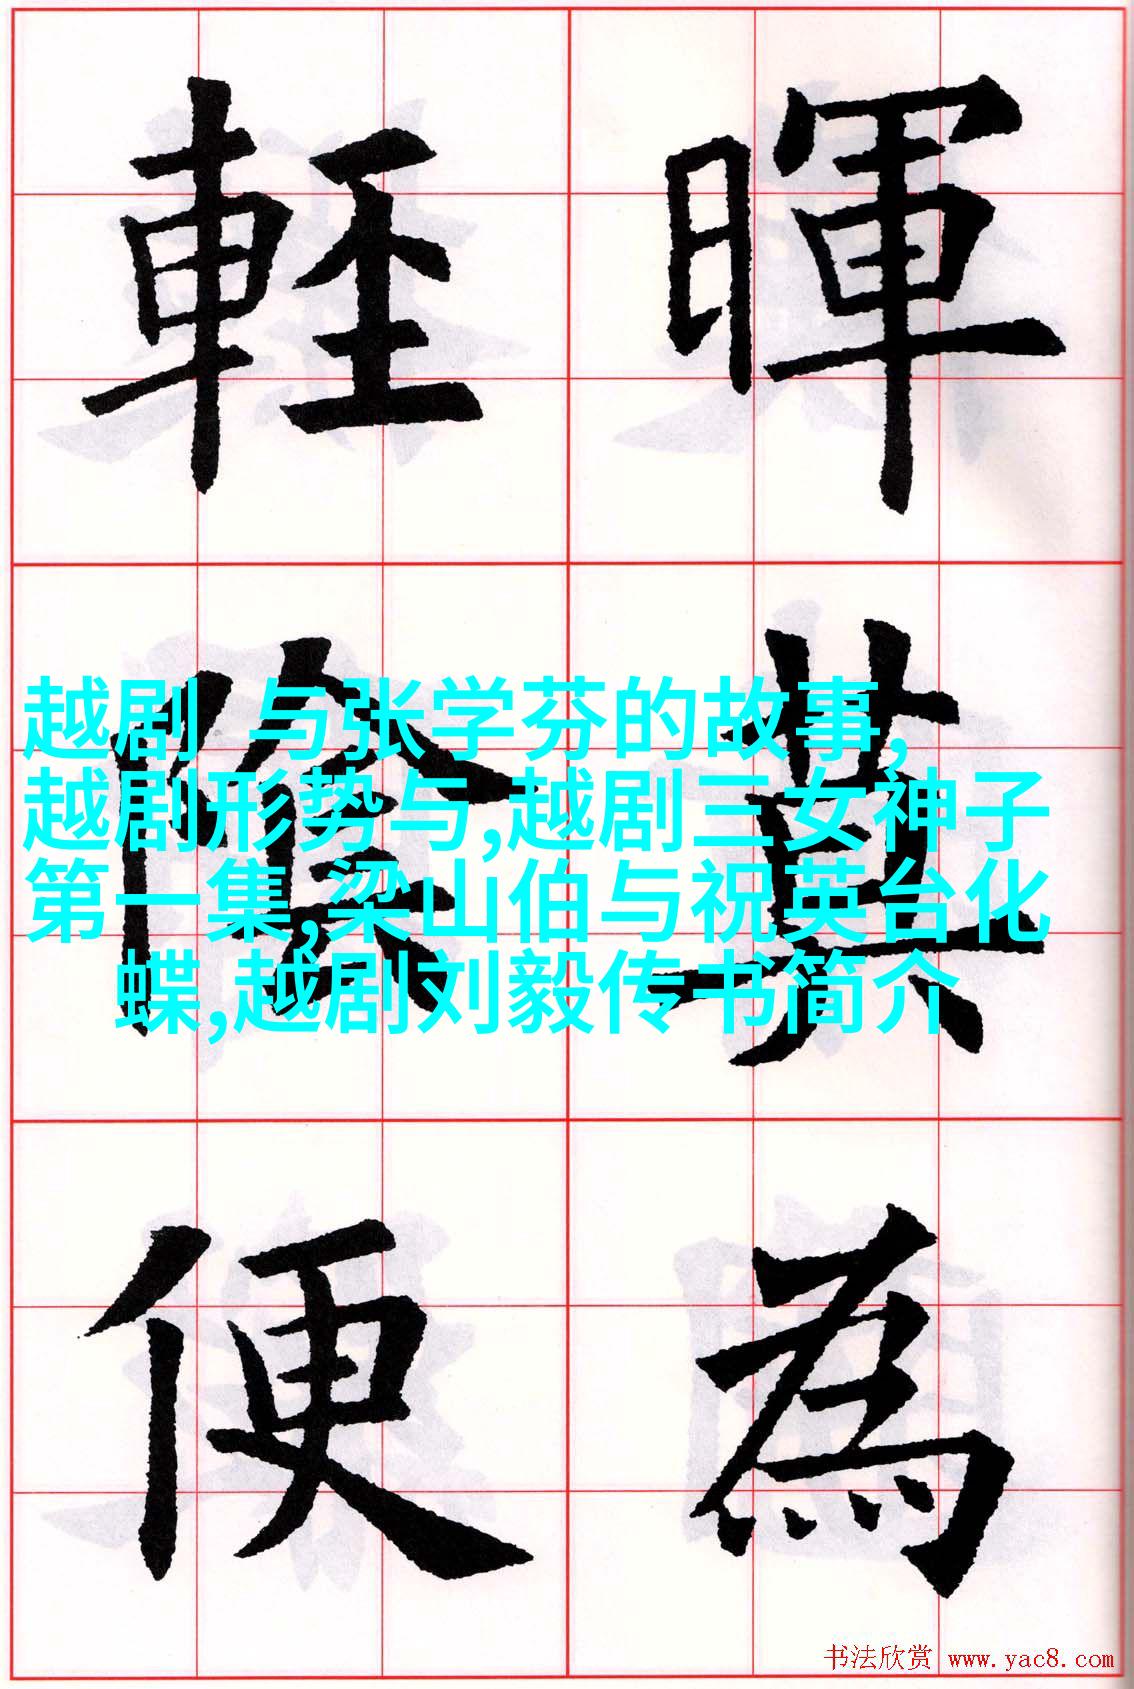 輕 暉
陰 莫
便 為
越剧 与张学芬的故事,
越剧形势与,越剧三女神子
第一集,梁山伯与祝英台化
蝶,越剧刘毅传书简介
书法欣赏 www.yac8.com